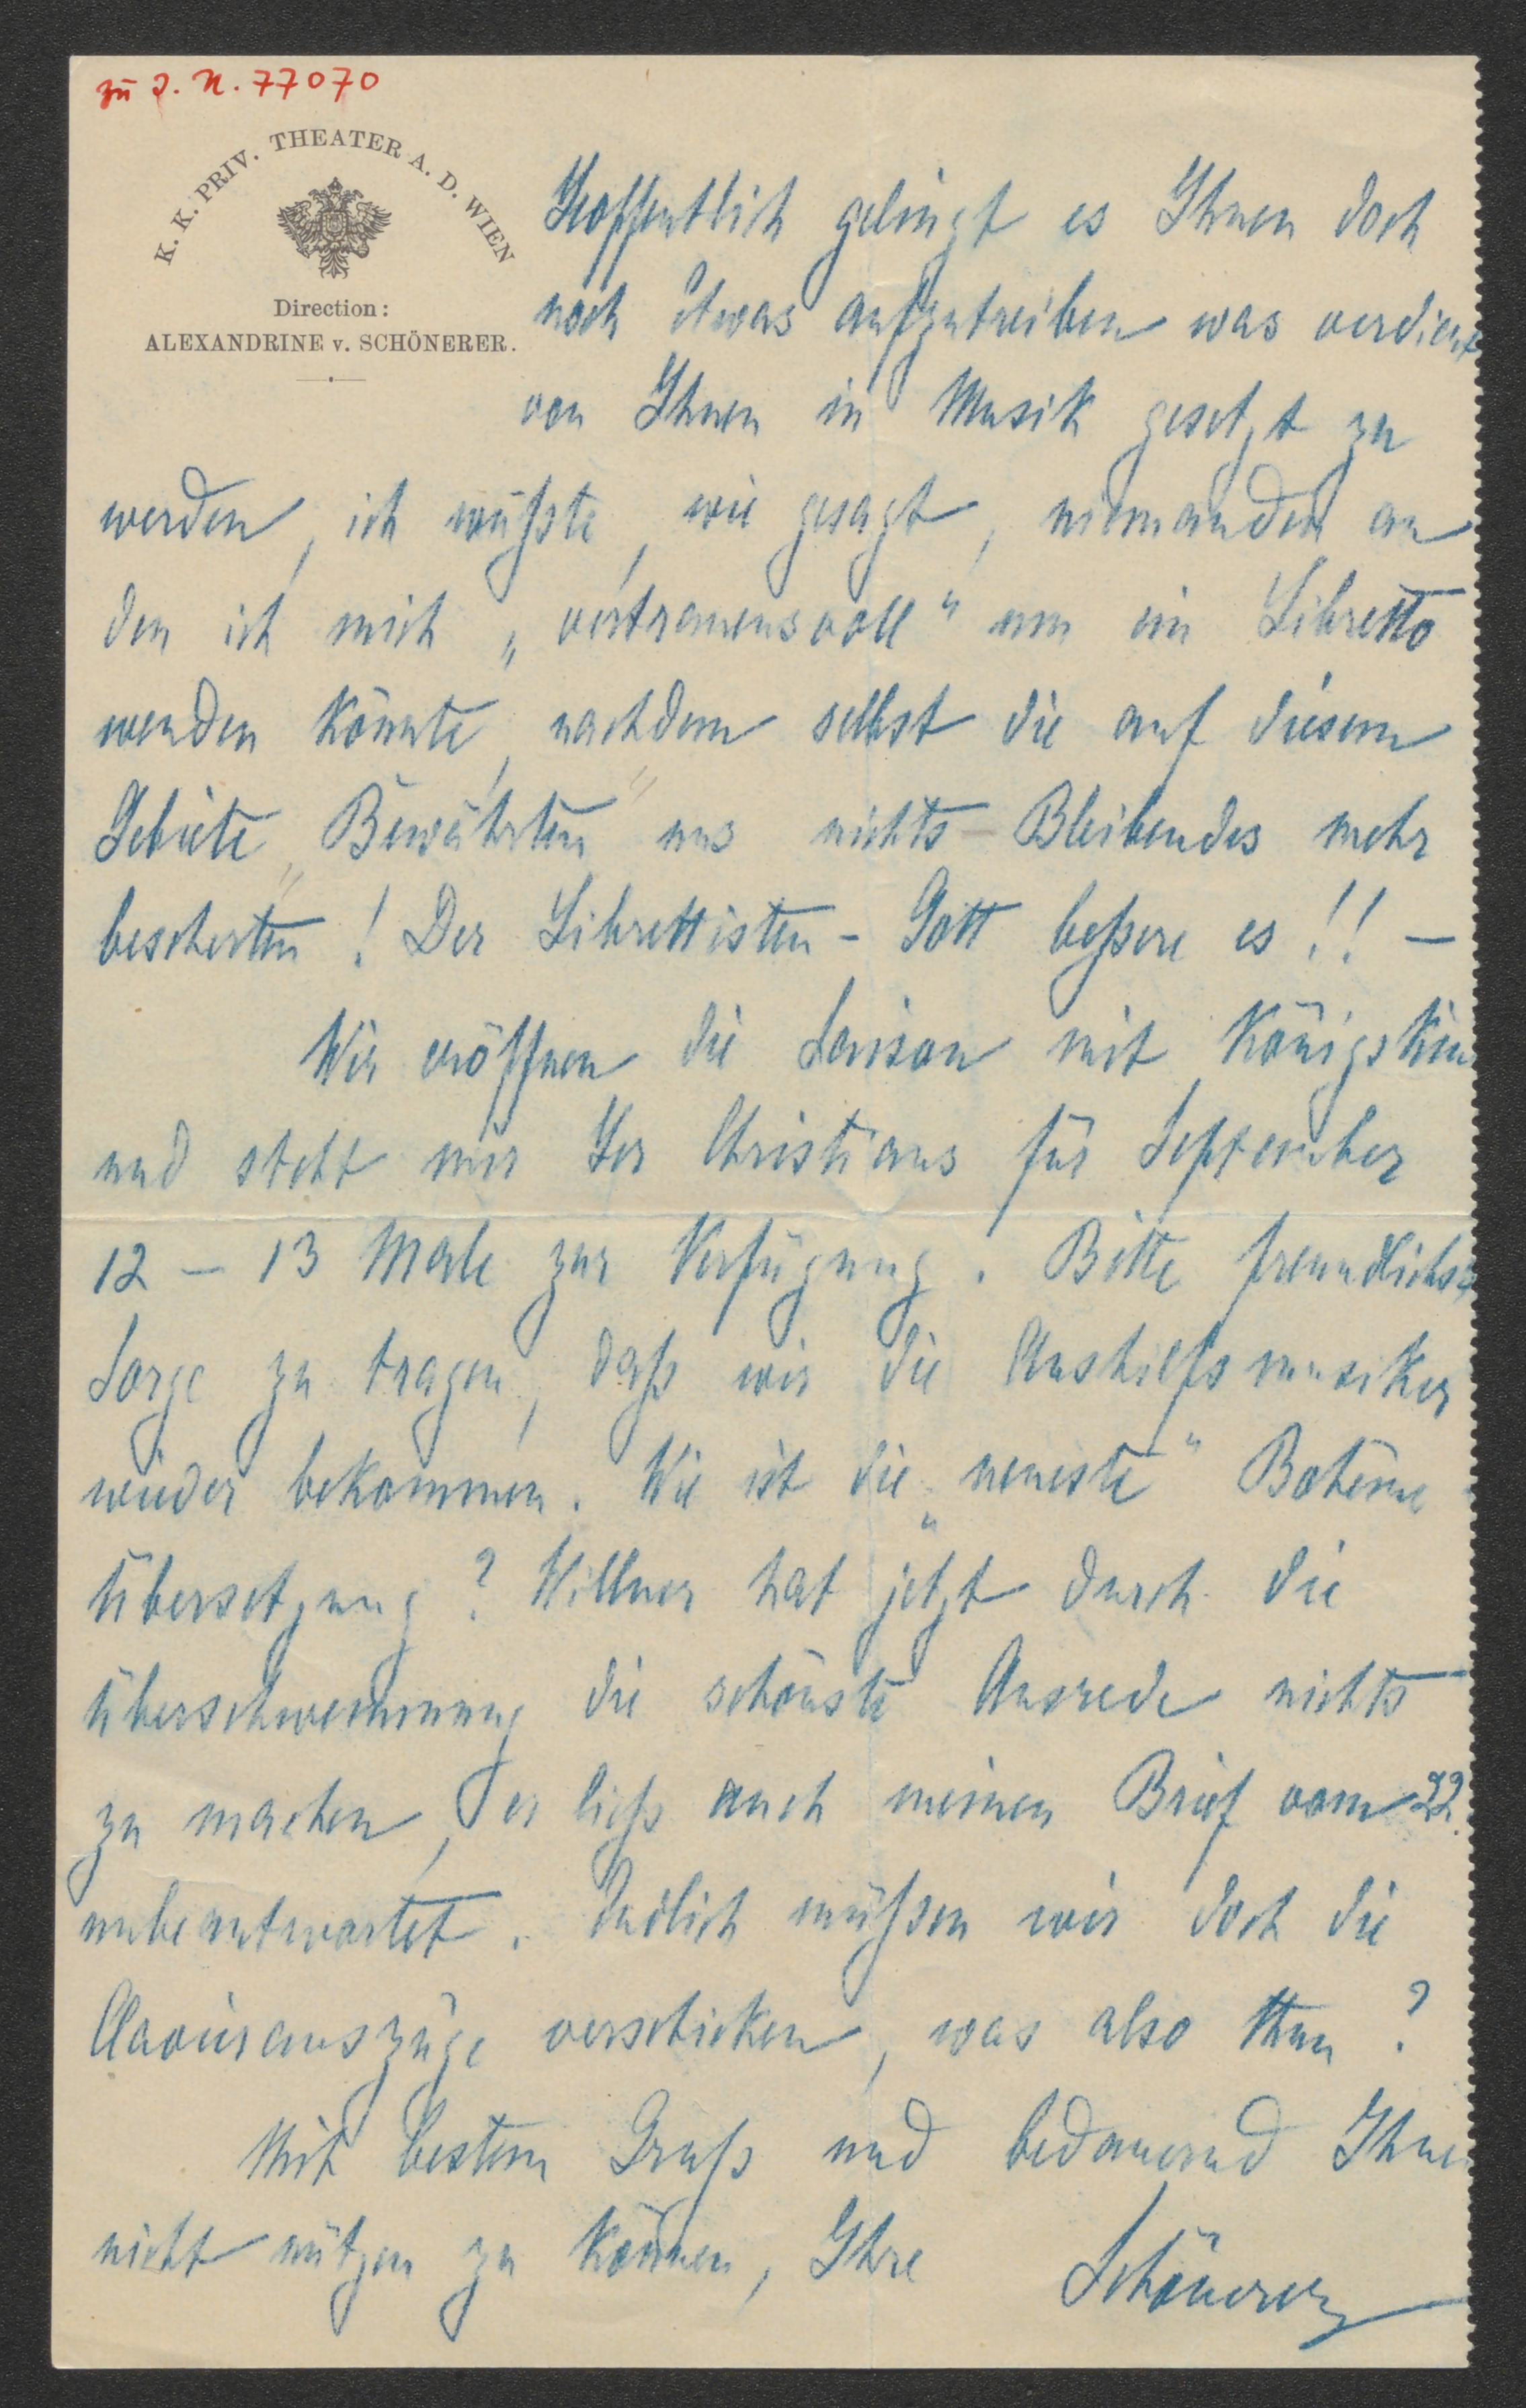 zu I. N. 77070
K. K. PRIV. THEATER A. D. WIEN
Direction:
ALEXANDRINE v. SCHÖNERER.
Hoffentlich gelingt es Ihnen doch
noch etwas aufzutreiben was verdient
von Ihnen in Musik gesetzt zu
werden, ich wüßte, wie gesagt, niemanden an
den ich mich „vertrauensvoll“ um ein Libretto
wenden könnte, nachdem selbst die auf diesem
Gebiete „Bewährten“ uns nichts Bleibendes mehr
bescherten! Der Librettisten-Gott beßere es!! —
Wir eröffnen die Saison mit Königskin
und steht mir Her Christians für September
12 – 13 Male zur Verfügung. Bitte freundlichst
Sorge zu tragen, daß wir die Aushilfsmusiker
wieder bekommen. Wie ist die „neueste“ Bohème
Übersetzung? Willner hat jetzt durch die
Überschwemmung die schönste Ausrede nichts
zu machen, er ließ auch meinen Brief vom 22.
unbeantwortet. Endlich müßsen wir doch die
Clavierauszüge verschicken, was also thun?
Mit bestem Gruß und bedauernd Ihnen
nicht nützen zu können, Ihre Schönerer